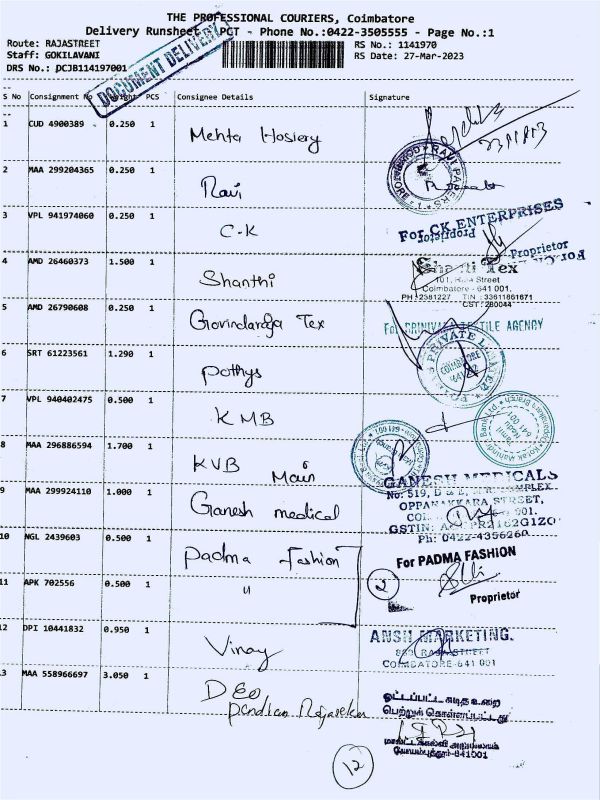 THE PROFESSIONAL COURIERS, Coimbatore
Delivery Runsheet PCT - Phone No.:0422-3505555 - Page No.:1
Route: RAJASTREET
RS No.: 1141970
Staff: GOKILAVANI
RS Date: 27-Mar-2023
DRS No.: PCJB114197001
DOCUMENT DELIVERY
S No Consignment No Weight PCS Consignee Details Signature
1 CUD 4900389 0.250 1 Mehta Hosiery
2 MAA 299204365 0.250 1 Ravi
3 VPL 941974060 0.250 1 C-K
For CK ENTERPRISES
Proprietor
4 AMD 26460373 1.500 1 Shanthi
Shanti Tex
101, Raja Street
Coimbatore - 641 001.
PH: 2381227 TIN : 33611861671
CST: 280044
5 AMD 26790608 0.250 1 Govindaraja Tex
For SRINIVASA TEXTILE AGENCY
6 SRT 61223561 1.290 1 Pothys
PRIVATE LIMITED
COIMBATORE
7 VPL 940402475 0.500 1 KMB
Kotak Mahindra Bank Ltd
641 001
8 MAA 296886594 1.700 1 KVB Main
9 MAA 299924110 1.000 1 Ganesh medical
GANESH MEDICALS
No: 519, D & E, COMPLEX
OPPANAKKARA STREET,
001.
GSTIN:
Ph: 0422-4356260
10 NGL 2439603 0.500 1 Padma Fashion
For PADMA FASHION
Proprietor
11 APK 702556 0.500 1 "
2
12 DPI 10441832 0.950 1 Vinay
ANSH MARKETING.
RAJA STREET
COIMBATORE-641 001
13 MAA 558966697 3.050 1 DEO
Pandian Rajasekar
ஒட்டப்பட்ட கடித உறை
பெற்றுக் கொள்ளப்பட்டது
மாவட்டக்கல்வி அலுவலகம்
கோயம்புத்தூர்-641001
12